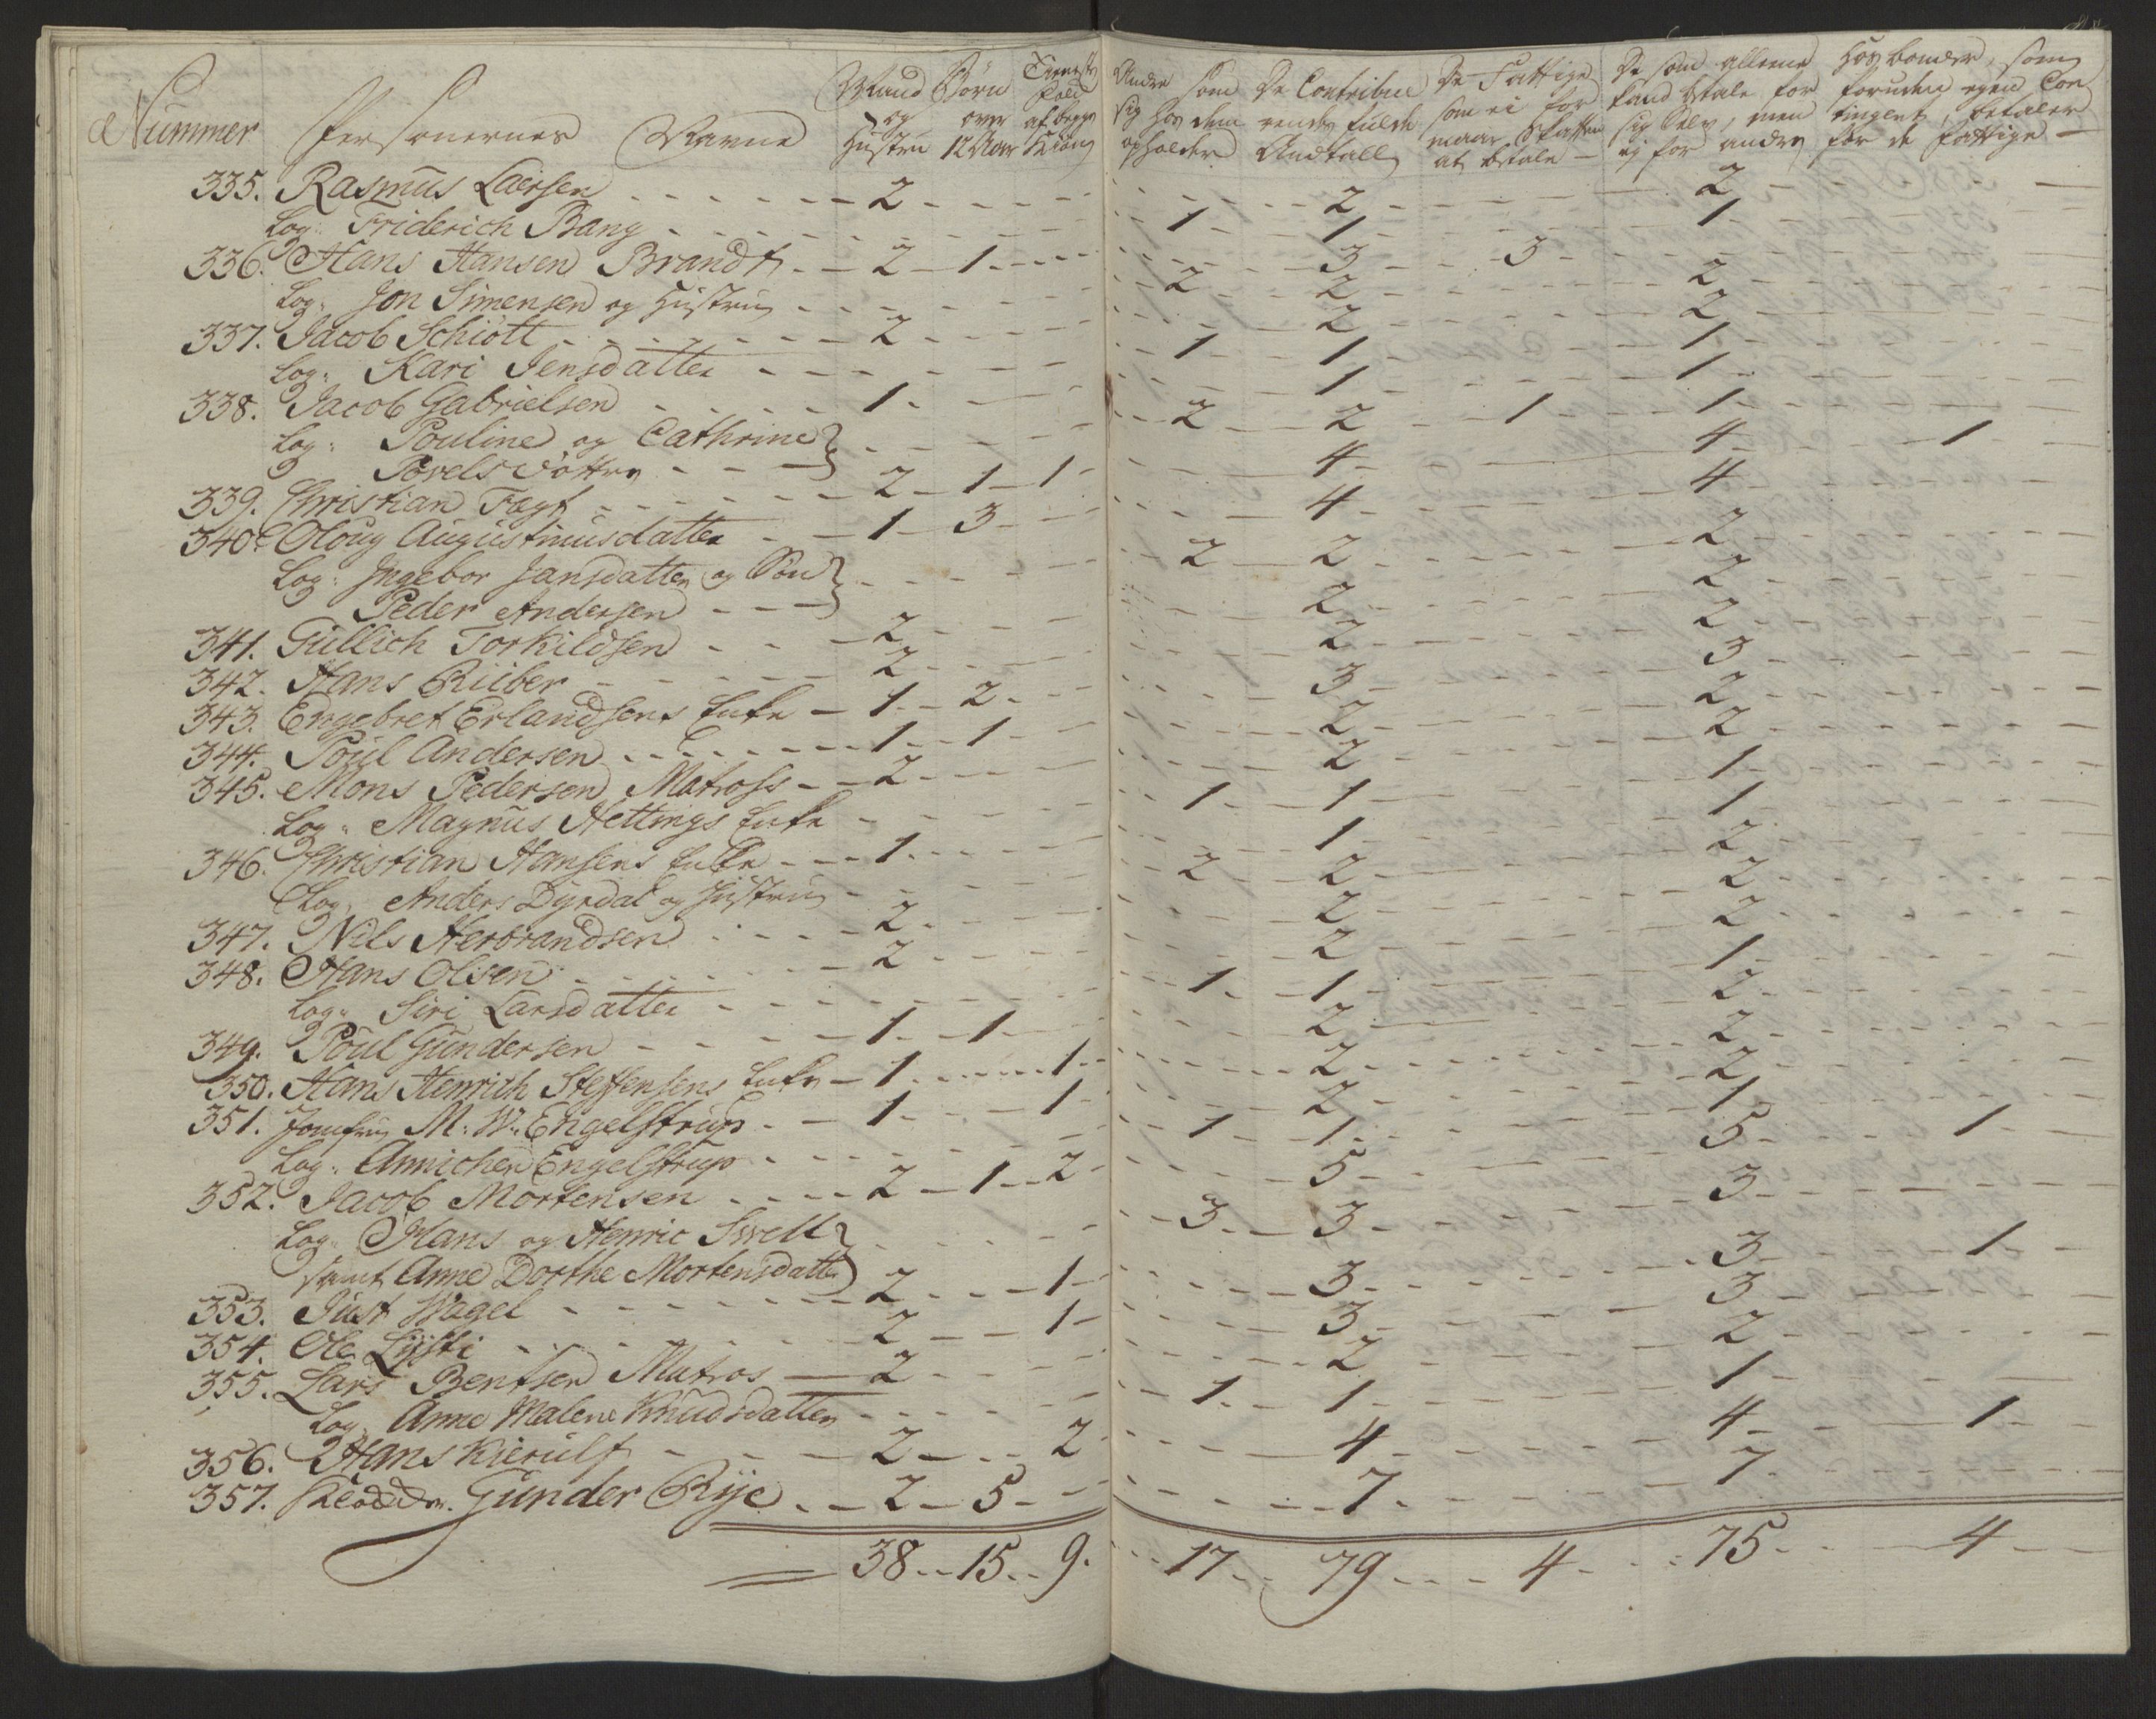 Nummer Personernes Navne Mand og Hustru Børn over 12 Aar Tieneste Folk af begge Kiøn Andre som sig hos dem opholder De Contribuerende fulde Andtall De Fattige som ei formaar Skatten at betale De som alleene kand betale for sig Selv, men ej for andre Hosbonder, som foruden egen Contingent, betaler for de fattige
335. Rasmus Laersen 2 2 2
Log: Friderich Bang 1 1 1
336. Hans Hansen Brandt 2 1 3 3
Log: Jon Simensen og Hustrue 2 2 2
337. Jacob Schiött 2 2 2
Log: Kari Jensdatter 1 1 1
338. Jacob Gabrielsen 1 1 1
Log: Pouline og Cathrine 2 2 1 1
Povels Döttre
339. Christian Fogt 2 1 1 4 4 1
340. Oloug Augustinusdatter 1 3 4 4
Log: Ingebor Jansdatter og Sön 2 2 2
Peder Andersen
341. Gullich Torkildsen 2 2 2
342. Hans Riiber 2 2 2
343. Engebret Erlandsens Enke 1 2 3 3
344. Poul Andersen 1 1 2 2
345. Mons Pedersen Matross 2 2 2
Log: Magnus Hettings Enke 1 1 1
346. Christian Hansens Enke 1 1 1
Log: Anders Dyrdal og Hustrue 2 2 2
347. Nils Herbrandsen 2 2 2
348. Hans Olsen 2 2 2
Log: Siri Larsdatter 1 1 1
349. Poul Gundersen 1 1 2 2
350. Hans Henrich Steffensens Enke 1 1 2 2
351. Jomfru M: W: Engelstrup 1 1 2 2
Log: Annichen Engelstrup 1 1 1
352. Jacob Mortensen 2 1 2 5 5 1
Log: Hans og Henric Swelt 3 3 3
samt Anne Dorthe Mortensdatter
353. Just Wagel 2 1 3 3 1
354. Ole Lysti 2 1 3 3
355. Lars Bentsen Matros 2 2 2
Log: Anne Malene Knudsdatter 1 1 1
356. Hans Kierulf 2 2 4 4 1
357. Gunder Rye 2 5 7 7
38 15 9. 17 79 4 75 4